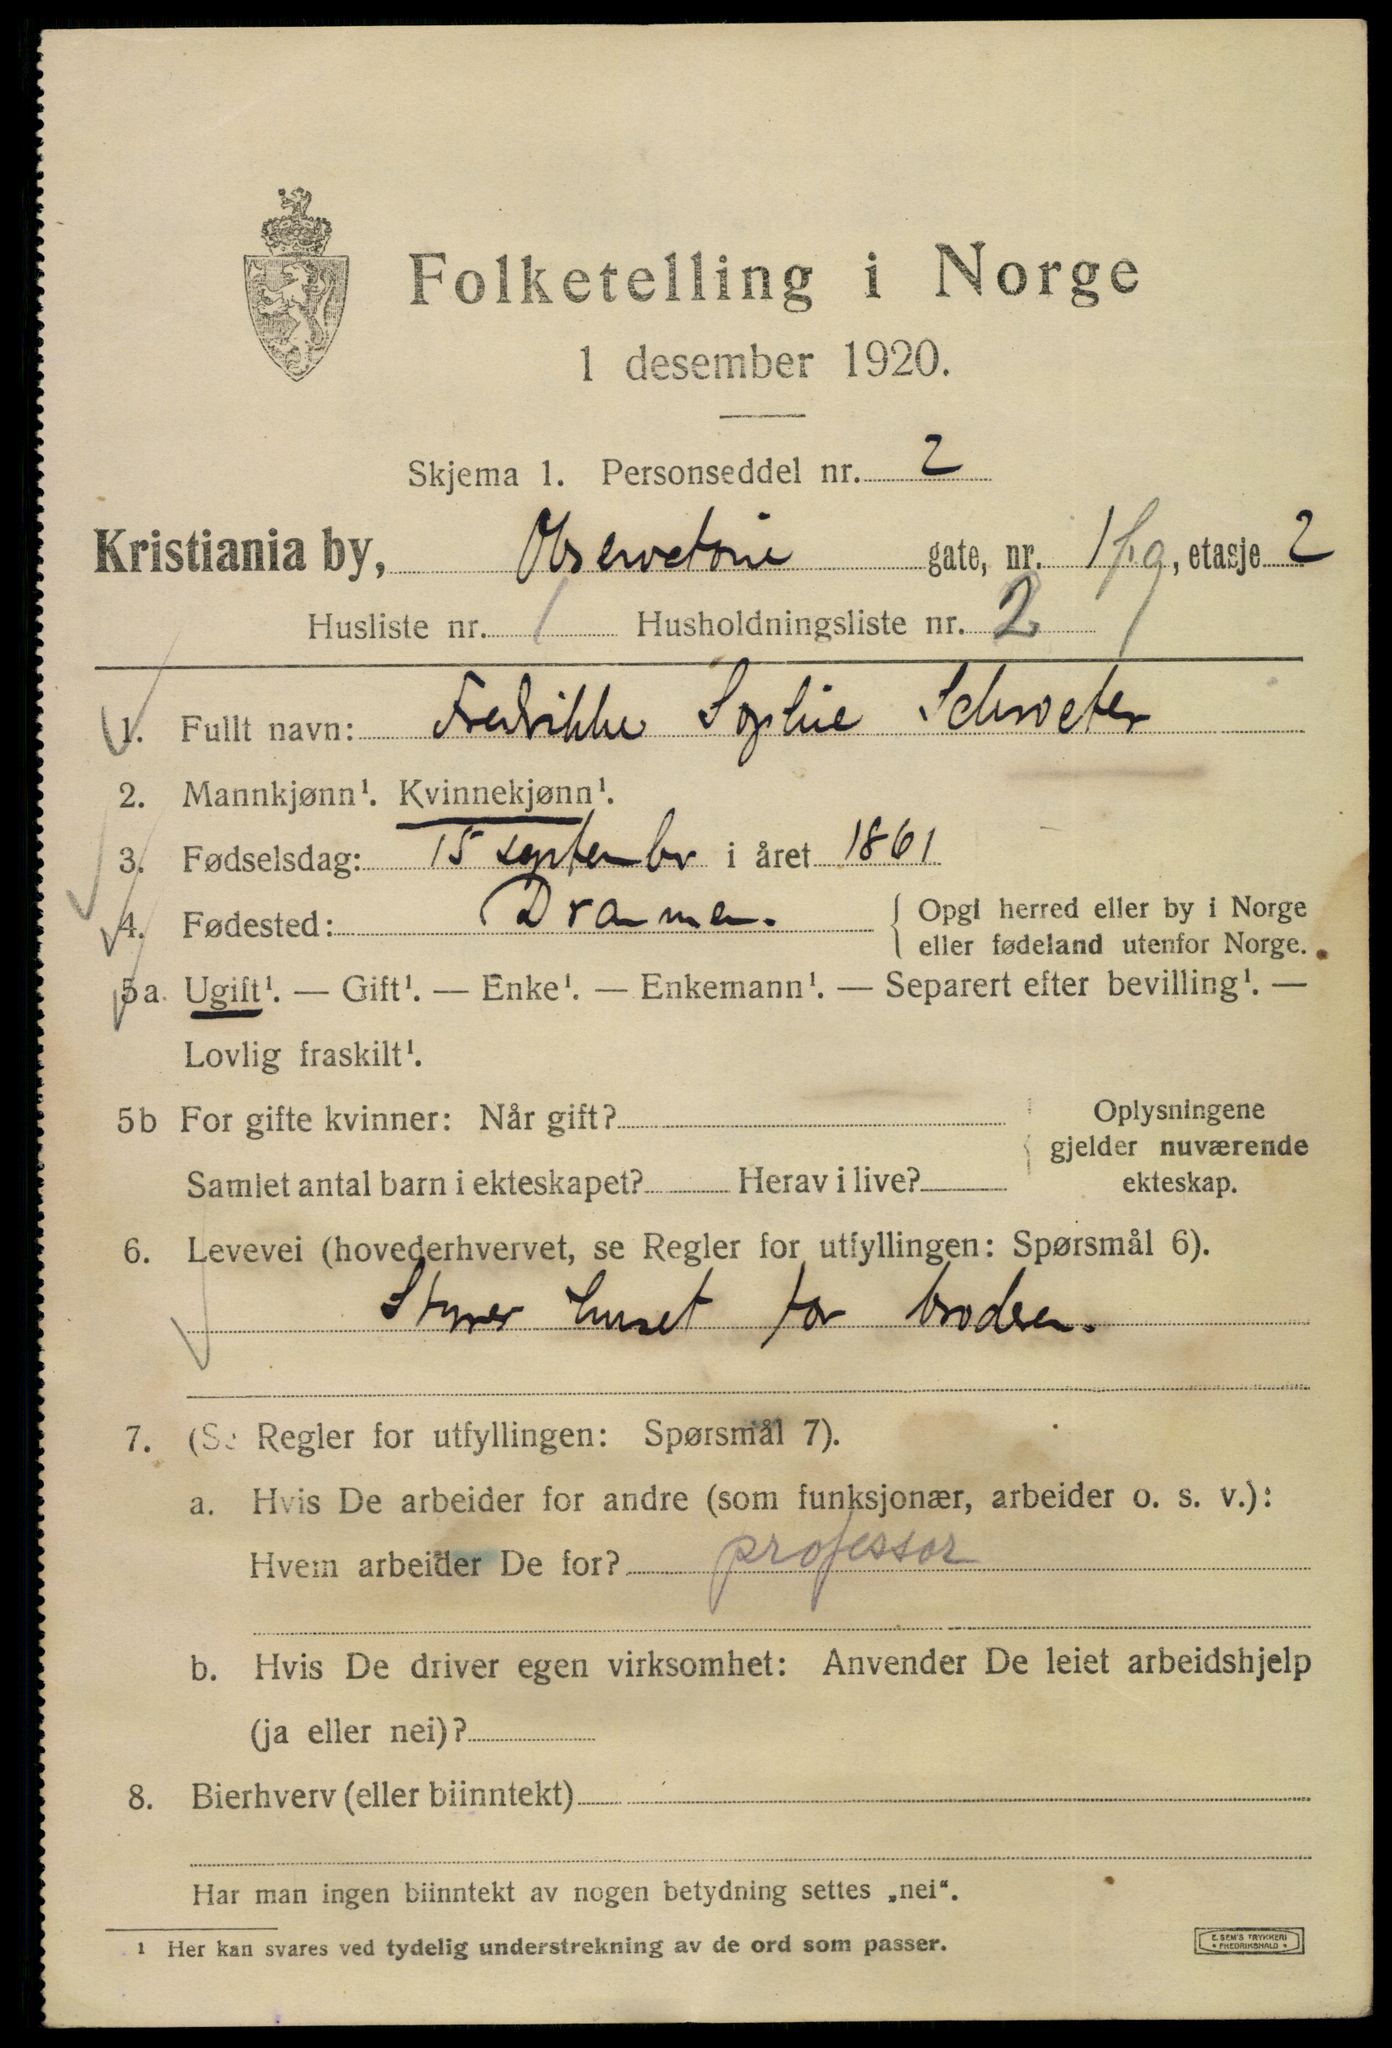 Folketelling i Norge
1 desember 1920.
Skjema 1. Personseddel nr. 2
Kristiania by, Observatorie gate, nr. 1 f.g, etasje 2
Husliste nr. 1 Husholdningsliste nr. 2
1. Fullt navn: Fredrikke Sophie Schroeter
2. Mannkjønn¹. Kvinnekjønn¹.
3. Fødselsdag: 15 september i året 1861
4. Fødested: Drammen. { Opgi herred eller by i Norge
eller fødeland utenfor Norge.
5a. Ugift¹. — Gift¹. — Enke¹. — Enkemann¹. — Separert efter bevilling¹. —
Lovlig fraskilt¹.
5b For gifte kvinner: Når gift? Oplysningene
gjelder nuværende
Samlet antal barn i ekteskapet? Herav i live? ekteskap.
6. Levevei (hovederhvervet, se Regler for utfyllingen: Spørsmål 6).
Styrer huset for broderen.
7. (Se Regler for utfyllingen: Spørsmål 7).
a. Hvis De arbeider for andre (som funksjonær, arbeider o. s. v.):
Hvem arbeider De for? professor
b. Hvis De driver egen virksomhet: Anvender De leiet arbeidshjelp
(ja eller nei)?
8. Bierhverv (eller biinntekt)
Har man ingen biinntekt av nogen betydning settes „nei“.
¹ Her kan svares ved tydelig understrekning av de ord som passer.
E. SEM'S TRYKKERI
FREDRIKSHALD